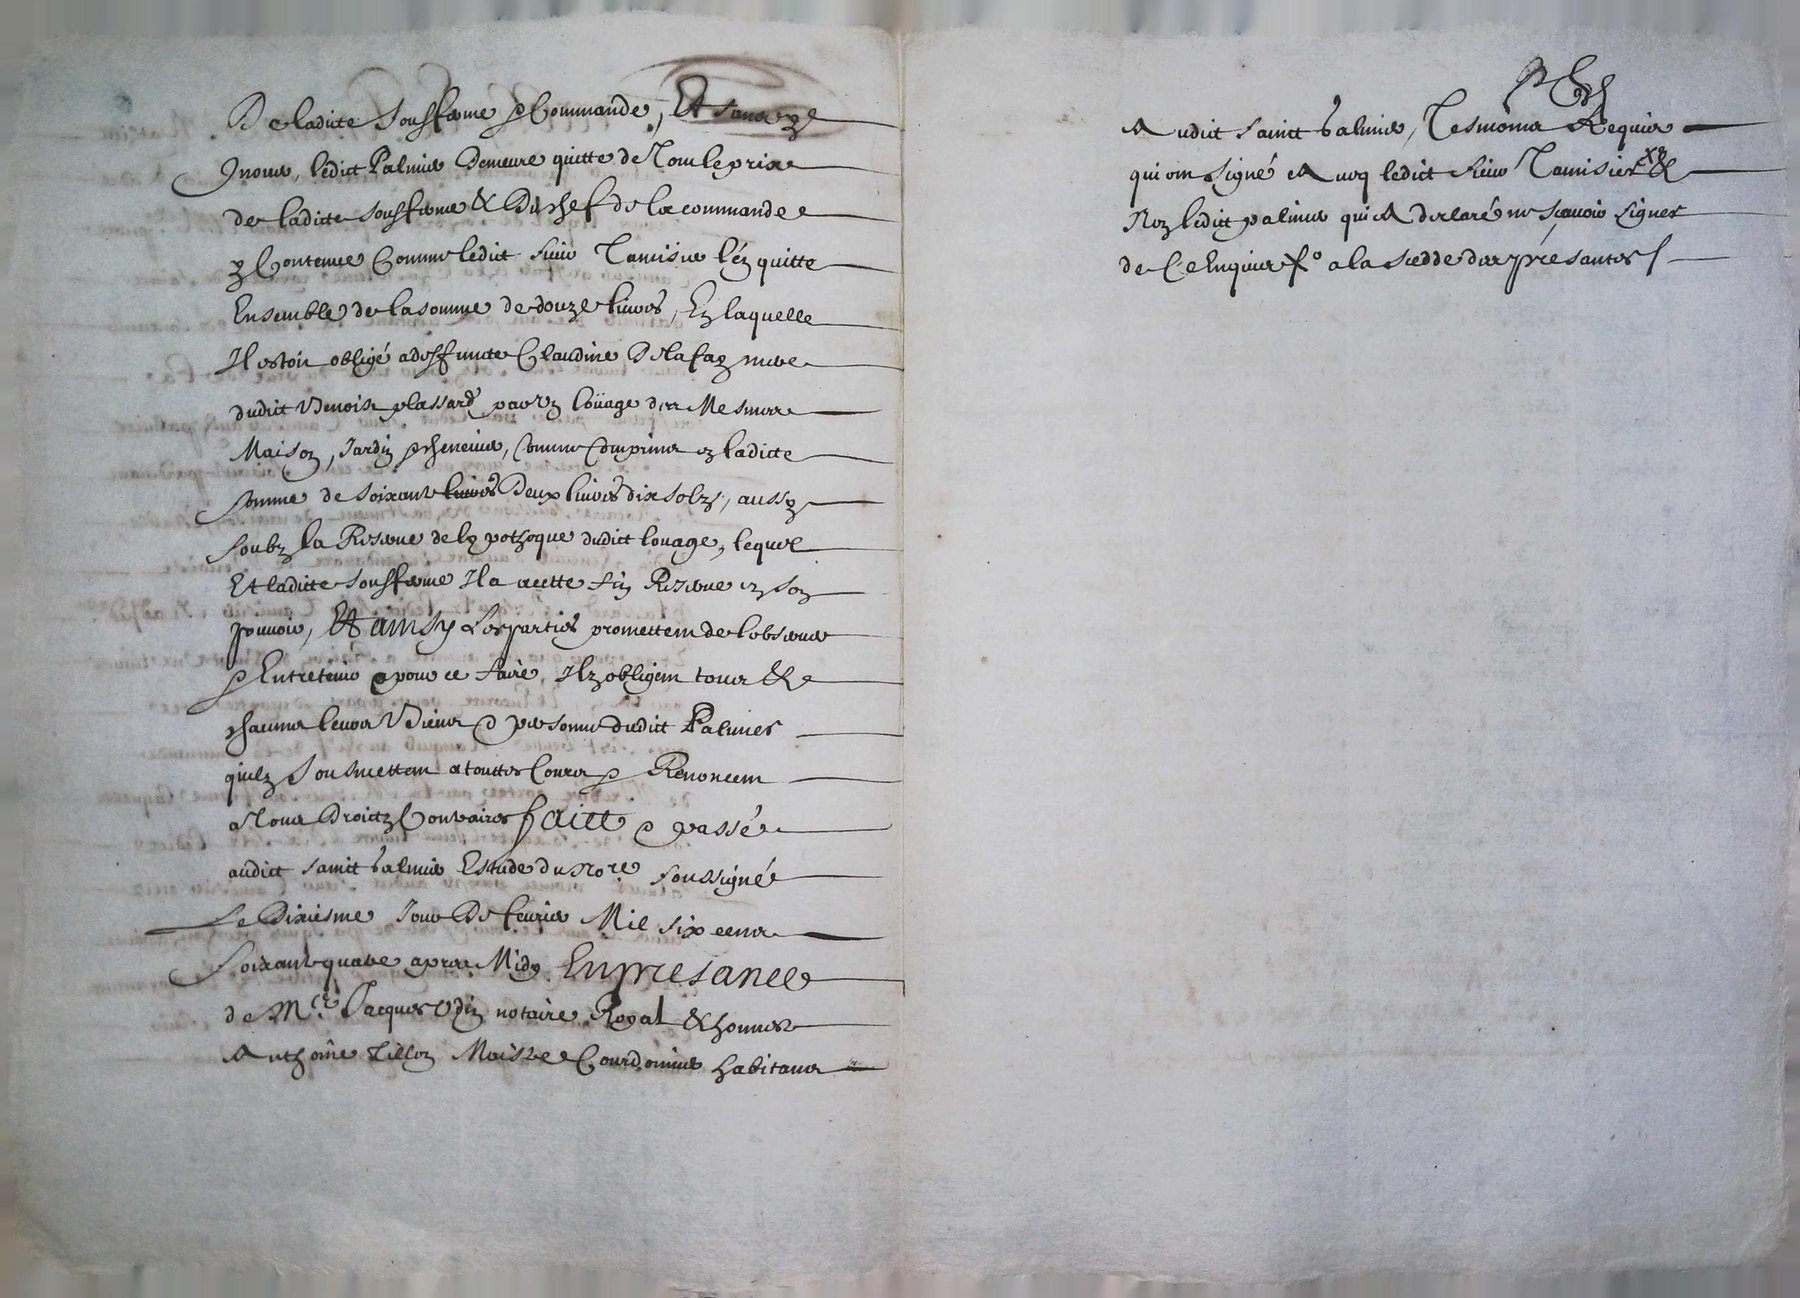 De ladicte sousferme & Commande, Et sans
Innover, ledict Palmier Demeure quitte de Tout le prix
de ladicte sousferme & Du chef de la commande
y Contenue Comme ledict sieur Tamisier l'en quitte
Ensemble de la somme de douze livres, En laquelle
Il estoit obligé a deffuncte Claudine Delafay mere
dudict Benoist plassard pour un loüage des Mesmes
Maison, Jardin & chenevier, Comme Comprins en ladicte
somme de soixante livres Deux livres dix solz, aussy
soubz la Reserve de lypotheque dudict louage, lequel
Et ladicte sousferme Il a a cette fin Reservé en son
pouvoir, Et ainsy Les parties promettent de lobserver
& Entretenir & pour ce faire, Ilz obligent tous &
chacuns leurs Biens & personne dudict Palmier
quilz sousmettent a touttes Cours & Renoncent
a Tous Droictz Contraires faict & passé
audict sainct Galmier Estude du Nore soussigné
Le Dixiesme Jour De febvrier Mil six cents
soixante quatre apres Midy En presance
de Mre. Jacques Odin notaire Royal & honneste
Anthoine Tillon Maistre Courdonnier habitans
Audict sainct Galmier, Tesmoins Requis
qui ont signé Avecq ledict sieur Tamisier &
Non ledict palmier qui A declaré ne sçavoir signer
de Ce Enquis Xo a la cedde des presantes